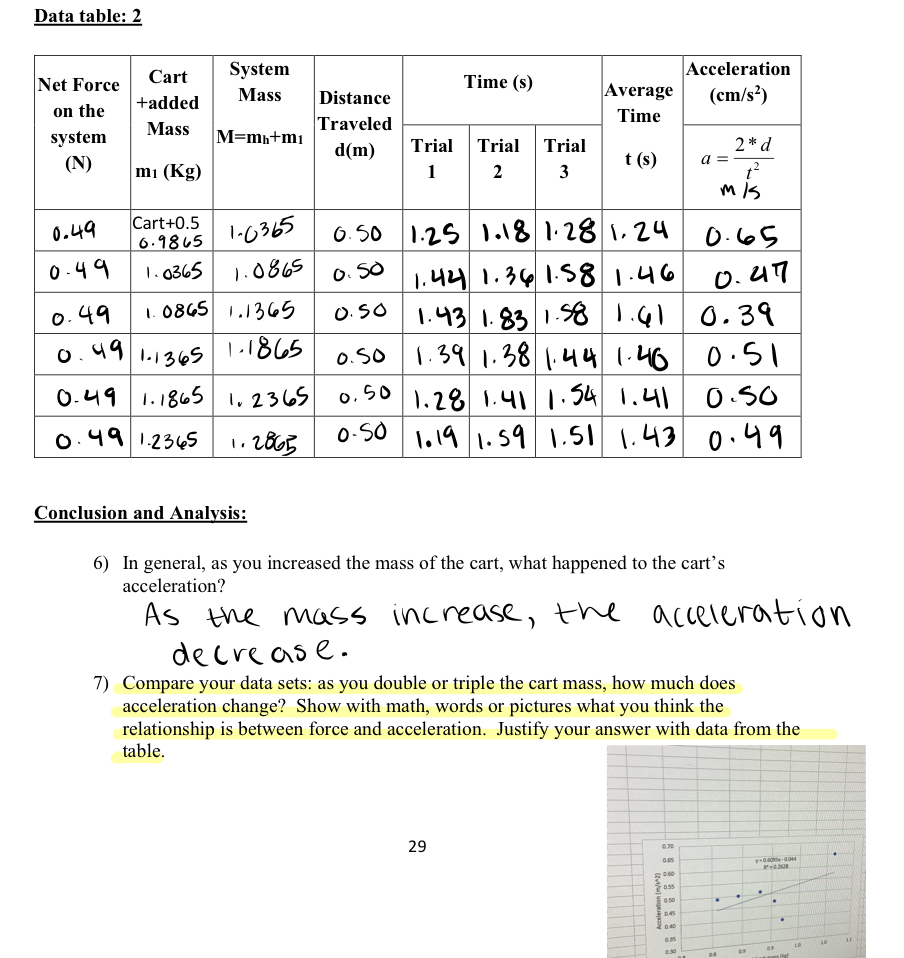 Data table: 2
Net Force on the system (N)
Cart +added Mass m₁ (Kg)
System Mass M=mₕ+m₁
Distance Traveled d(m)
Time (s)
Trial 1
Trial 2
Trial 3
Average Time t (s)
Acceleration (cm/s²)
a = 2*d / t²
m/s
0.49 Cart+0.5 0.9865 1.0365 0.50 1.25 1.18 1.28 1.24 0.65
0.49 1.0365 1.0865 0.50 1.44 1.36 1.58 1.46 0.47
0.49 1.0865 1.1365 0.50 1.43 1.83 1.58 1.61 0.39
0.49 1.1365 1.1865 0.50 1.39 1.38 1.44 1.40 0.51
0.49 1.1865 1.2365 0.50 1.28 1.41 1.54 1.41 0.50
0.49 1.2365 1.2865 0.50 1.19 1.59 1.51 1.43 0.49
Conclusion and Analysis:
6) In general, as you increased the mass of the cart, what happened to the cart's
acceleration?
As the mass increase, the acceleration
decrease.
7) Compare your data sets: as you double or triple the cart mass, how much does
acceleration change? Show with math, words or pictures what you think the
relationship is between force and acceleration. Justify your answer with data from the
table.
29
0.70
0.65
0.60
0.55
0.50
0.45
0.40
0.35
0.30
Acceleration (m/s^2)
0.8
0.9
0.9
1.0
1.0
1.1